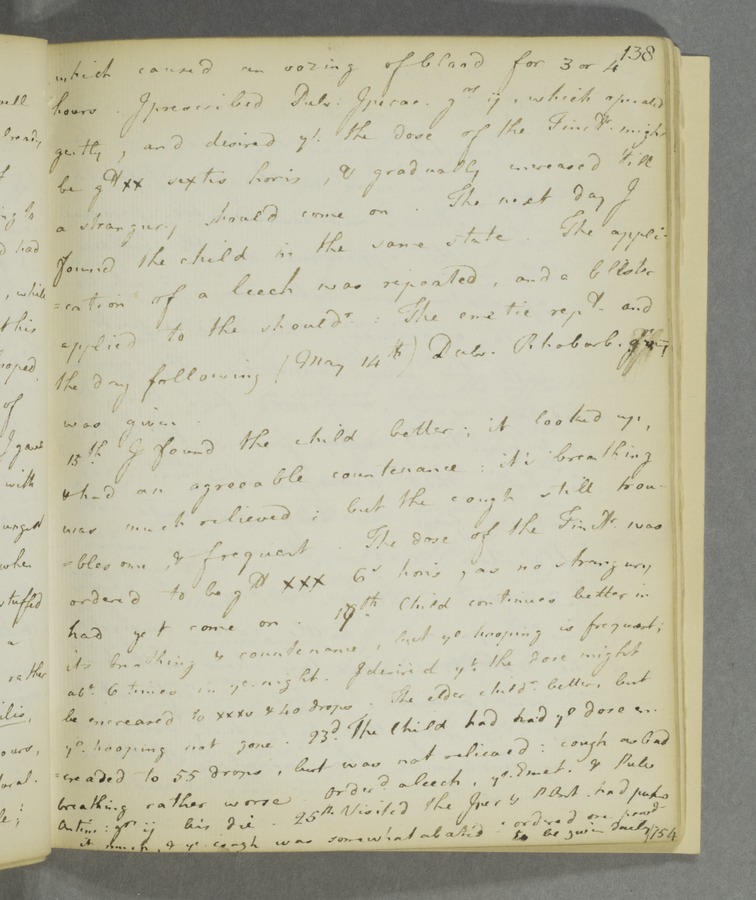 138
which caused an oozing of blood for 3 or 4
hours . I prescribed Pulv: Ipecac. grs ij, which operated
gently, and desired yt. the dose of the Tinctr. might
be gtt xx sextis horis, & gradually increased till
a strangury should come on . The next day I
found the child in the same state . The appli-
=cation of a leech was repeated, and a blister
applied to the shouldr. : The emetic repd. and
the day following (May 14th) Pulv. Rhobarb.
was given .
15th I found the child better ; it looked up,
& had an agreeable countenance : its breathing
was much relieved ; but the cough still trou-
-blesome, & frequent . The dose of the Tinctr. was
ordered to be gtt xxx 6s horis, as no strangury
had yet come on . th Child continues better in
its breathing & countenance, but ye hooping is frequent ;
abt. 6 times in ye. night. I desired yt. the dose might
be encreased to xxxv & 40 drops . The elder child better, but
ye. hooping not gone . 23d. The Child had had ye dose en-
creased to 55 drops, but was not relieved : cough as bad
breathing rather worse orderd a leech, & Pulv
Antim: gr ij bis die . 25th Visited the had
it much, & ye cough was somewhat abated ordered one
to be given daily
1754